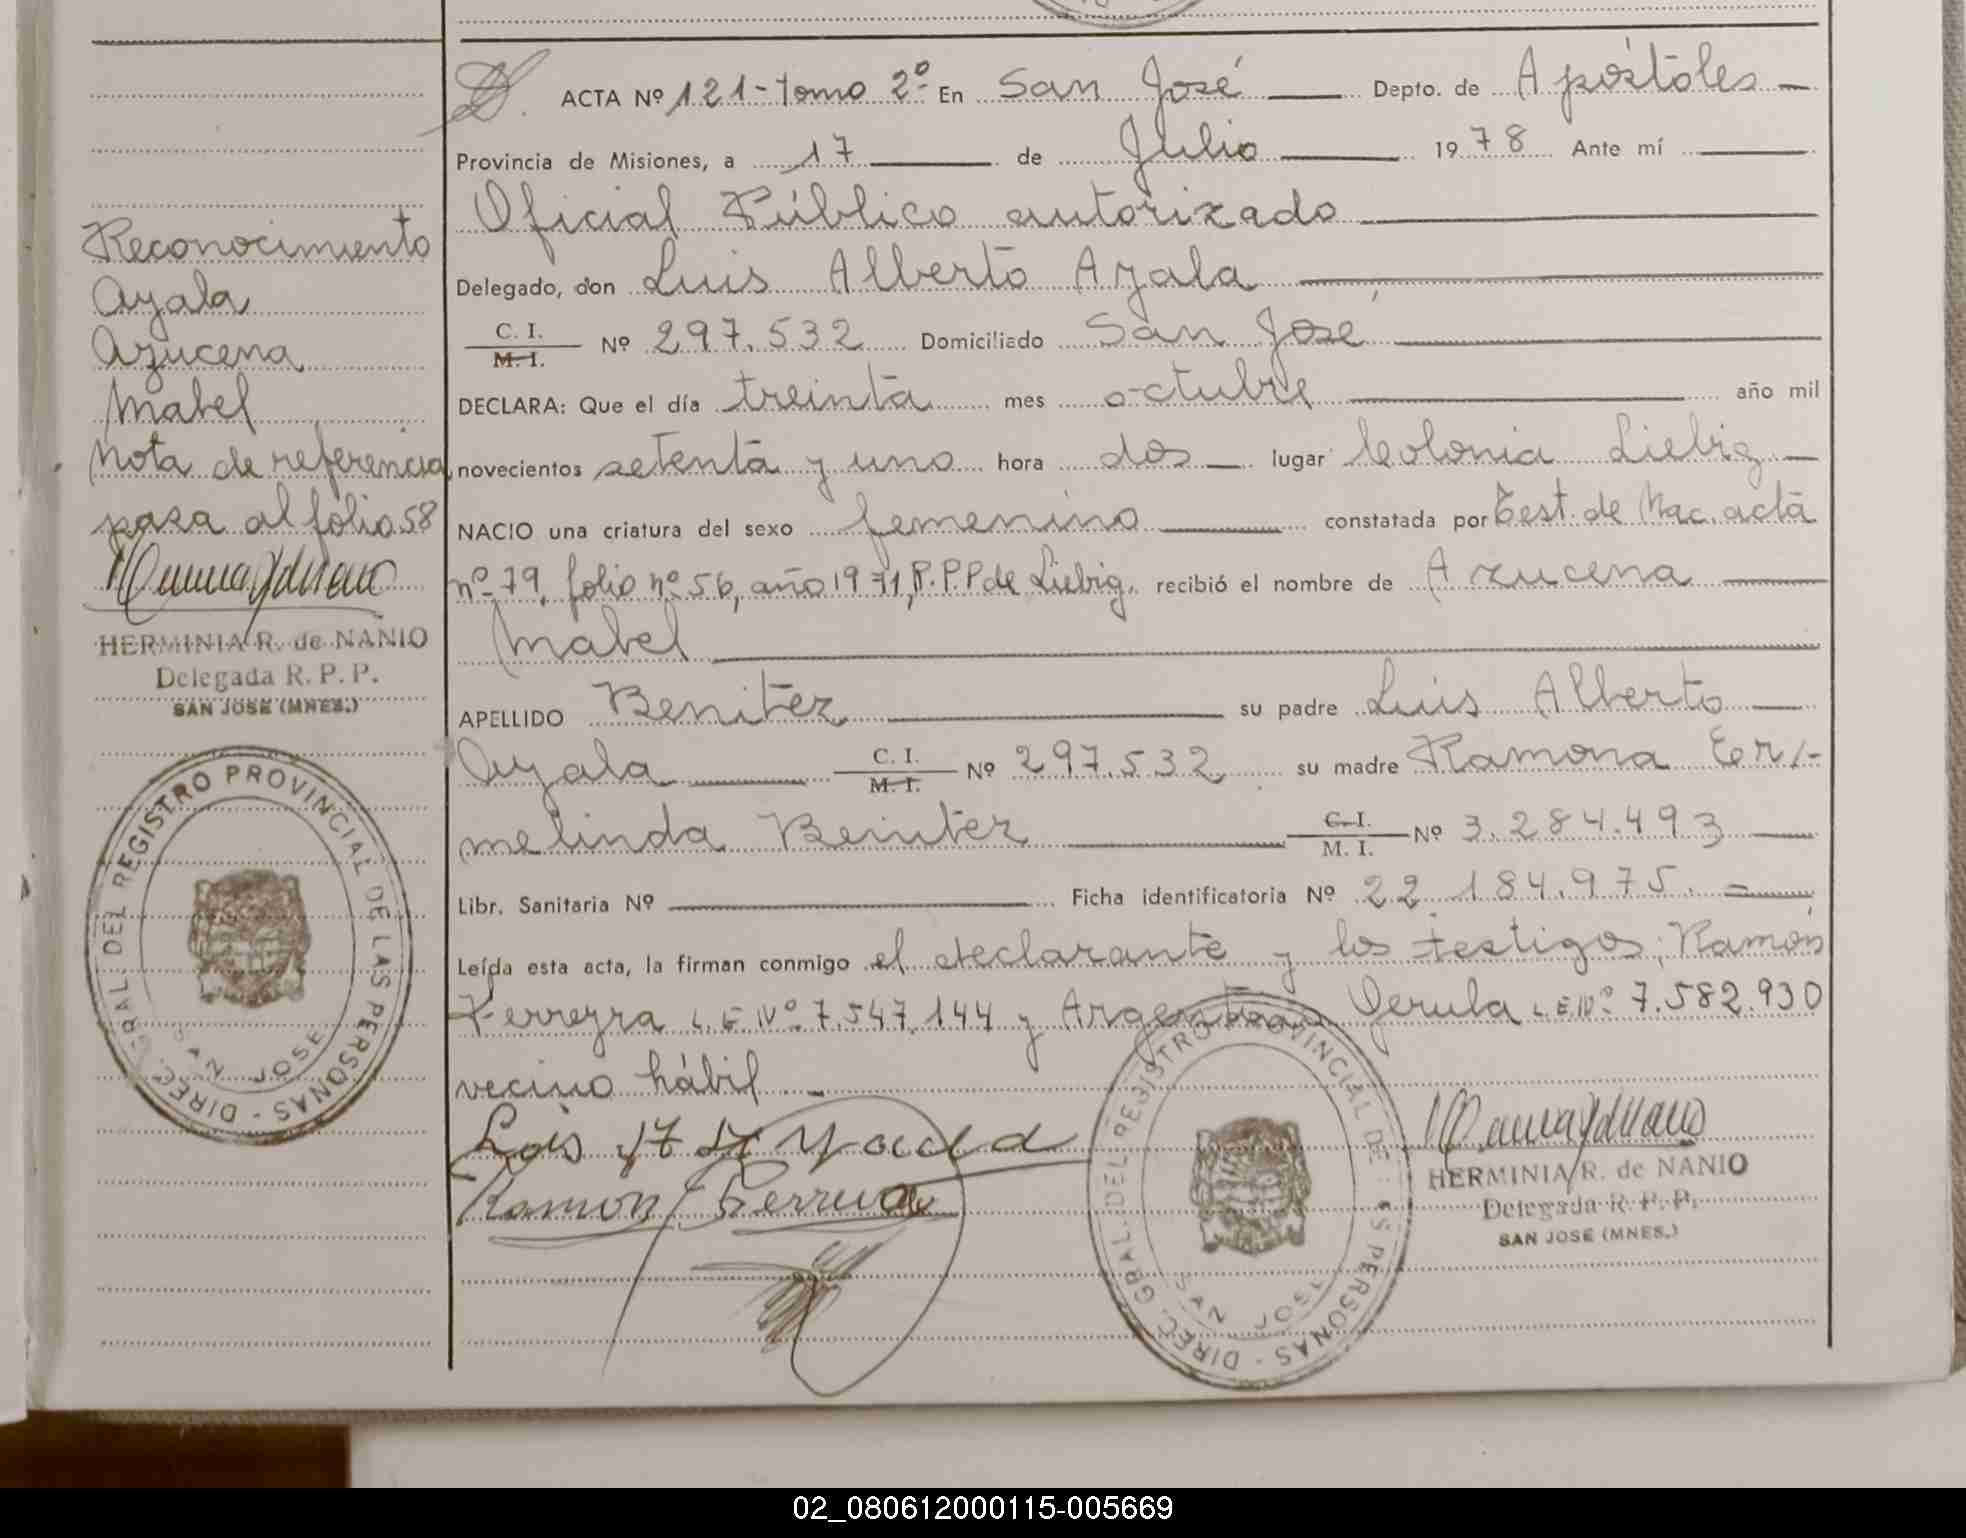 ACTA Nº 121 - Tomo 2º En San José Depto. de Apóstoles
Provincia de Misiones, a 17 de Julio 1978 Ante mí
Oficial Público autorizado
Delegado, don Luis Alberto Ayala
C. I. M. I. Nº 297.532 Domiciliado San José
DECLARA: Que el día treinta mes octubre año mil
novecientos setenta y uno hora dos lugar Colonia Liebig
NACIO una criatura del sexo femenino constatada por Test. de Nac. acta
nº 79, folio nº 56, año 1971, R.P.P de Liebig. recibió el nombre de Azucena
Mabel
APELLIDO Benitez su padre Luis Alberto
Ayala C. I. M. I. Nº 297.532 su madre Ramona Er/-
melinda Benitez C. I. M. I. Nº 3.284.493
Libr. Sanitaria Nº Ficha identificatoria Nº 22.184.975.=
Leída esta acta, la firman conmigo el declarante y los testigos: Ramón
Ferreyra L.E Nº 7.547.144 y Argentino L.E Nº 7.582.930
vecino hábil
Ramon
HERMINIA R. de NANIO
Delegada R. P. P.
SAN JOSE (MNES.)
DIREC. GRAL. DEL REGISTRO PROVINCIAL DE LAS PERSONAS -
SAN JOSE
Reconocimiento
Ayala
Azucena
Mabel
Nota de referencia
pasa al folio 58
HERMINIA R. de NANIO
Delegada R. P. P.
SAN JOSE (MNES.)
DIREC. GRAL. DEL REGISTRO PROVINCIAL DE LAS PERSONAS -
SAN JOSE
02_080612000115-005669